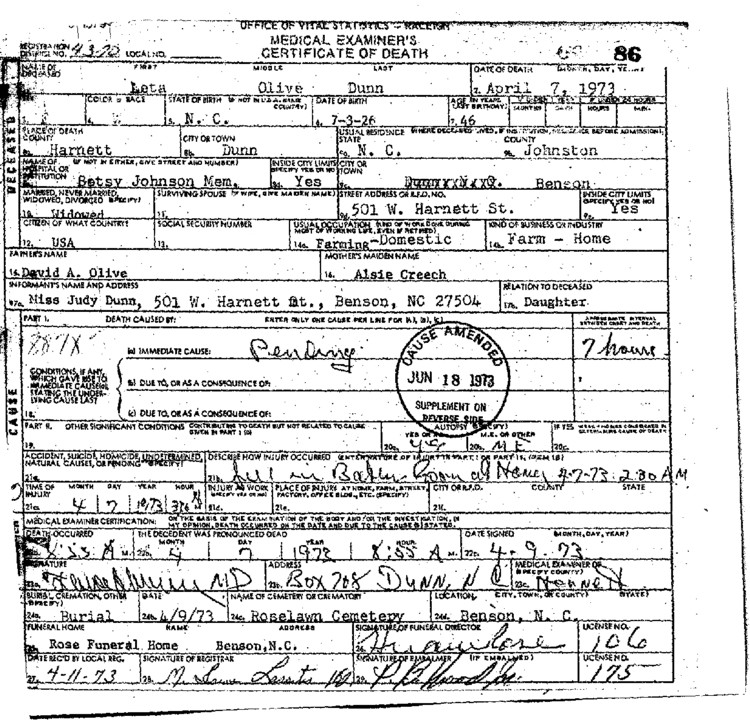 OFFICE OF VITAL STATISTICS - RALEIGH
MEDICAL EXAMINER'S
CERTIFICATE OF DEATH
REGISTRATION DISTRICT NO. 43-70 LOCAL NO. 86
NAME OF DECEASED FIRST MIDDLE LAST DATE OF DEATH (MONTH, DAY, YEAR)
Leta Olive Dunn 2. April 7, 1973
COLOR OR RACE STATE OF BIRTH (IF NOT IN U.S.A., STATE COUNTRY) DATE OF BIRTH AGE IN YEARS (LAST BIRTHDAY) MONTHS DAYS HOURS MIN.
3. F 4. 5. N. C. 6. 7-3-26 7. 46
PLACE OF DEATH COUNTY CITY OR TOWN USUAL RESIDENCE (WHERE DECEASED LIVED, IF INSTITUTION, RESIDENCE BEFORE ADMISSION) STATE COUNTY
Harnett Dunn N. C. Johnston
NAME OF HOSPITAL OR INSTITUTION (IF NOT IN EITHER, GIVE STREET AND NUMBER) INSIDE CITY LIMITS (SPECIFY YES OR NO) CITY OR TOWN
Betsy Johnson Mem. Yes Benson
MARRIED, NEVER MARRIED, WIDOWED, DIVORCED (SPECIFY) SURVIVING SPOUSE (IF WIFE, GIVE MAIDEN NAME) STREET ADDRESS OR R.F.D. NO. INSIDE CITY LIMITS (SPECIFY YES OR NO)
10. Widowed 501 W. Harnett St. Yes
CITIZEN OF WHAT COUNTRY? SOCIAL SECURITY NUMBER USUAL OCCUPATION (KIND OF WORK DONE DURING MOST OF WORKING LIFE, EVEN IF RETIRED) KIND OF BUSINESS OR INDUSTRY
12. USA 13. 14a. Farming-Domestic Farm - Home
FATHER'S NAME MOTHER'S MAIDEN NAME
David A. Olive 16. Alsie Creech
INFORMANT'S NAME AND ADDRESS RELATION TO DECEASED
17a. Miss Judy Dunn, 501 W. Harnett St., Benson, NC 27504 17b. Daughter
PART I. DEATH CAUSED BY: ENTER ONLY ONE CAUSE PER LINE FOR (A), (B), (C) APPROXIMATE INTERVAL BETWEEN ONSET AND DEATH
887X (a) IMMEDIATE CAUSE: Pending 7 hours
CONDITIONS, IF ANY, WHICH GAVE RISE TO IMMEDIATE CAUSE (A) STATING THE UNDERLYING CAUSE LAST
(b) DUE TO, OR AS A CONSEQUENCE OF:
18. (c) DUE TO, OR AS A CONSEQUENCE OF:
CAUSE AMENDED
JUN 18 1973
SUPPLEMENT ON
REVERSE SIDE
PART II. OTHER SIGNIFICANT CONDITIONS CONTRIBUTING TO DEATH BUT NOT RELATED TO CAUSE GIVEN IN PART I (A) AUTOPSY (SPECIFY) YES OR NO M.E. OR OTHER
19. 20a. yes 20b. ME 20c.
ACCIDENT, SUICIDE, HOMICIDE, UNDETERMINED, NATURAL CAUSES, OR PENDING (SPECIFY) DESCRIBE HOW INJURY OCCURRED (ENTER NATURE OF INJURY IN PART I OR PART II, ITEM 18)
21a. 21b. fell in Bath Room at Home 4-7-73 2:30 AM
TIME OF INJURY MONTH DAY YEAR HOUR INJURY AT WORK (SPECIFY YES OR NO) PLACE OF INJURY AT HOME, FARM, STREET, FACTORY, OFFICE BLDG., ETC. (SPECIFY) CITY OR R.F.D. COUNTY STATE
21c. 4 7 1973 21d. 21e. 21f.
MEDICAL EXAMINER CERTIFICATION: ON THE BASIS OF THE EXAMINATION OF THE BODY AND/OR THE INVESTIGATION, IN MY OPINION, DEATH OCCURRED ON THE DATE AND DUE TO THE CAUSE(S) STATED.
DEATH OCCURRED THE DECEDENT WAS PRONOUNCED DEAD MONTH DAY YEAR HOUR DATE SIGNED (MONTH, DAY, YEAR)
8:55 A M. 4 7 1973 8:55 A M. 22c. 4-9-73
SIGNATURE ADDRESS MEDICAL EXAMINER OF (SPECIFY COUNTY)
MD Box 708 Dunn, N C Harnett
BURIAL, CREMATION, OTHER (SPECIFY) DATE NAME OF CEMETERY OR CREMATORY LOCATION (CITY, TOWN, OR COUNTY) (STATE)
24a. Burial 24b. 4/9/73 24c. Roselawn Cemetery 24d. Benson, N. C.
FUNERAL HOME NAME ADDRESS SIGNATURE OF FUNERAL DIRECTOR LICENSE NO.
Rose Funeral Home Benson, N.C. 106
DATE REC'D BY LOCAL REG. SIGNATURE OF REGISTRAR SIGNATURE OF EMBALMER (IF EMBALMED) LICENSE NO.
27. 4-11-73 28. 29. 175
DECEASED
CAUSE